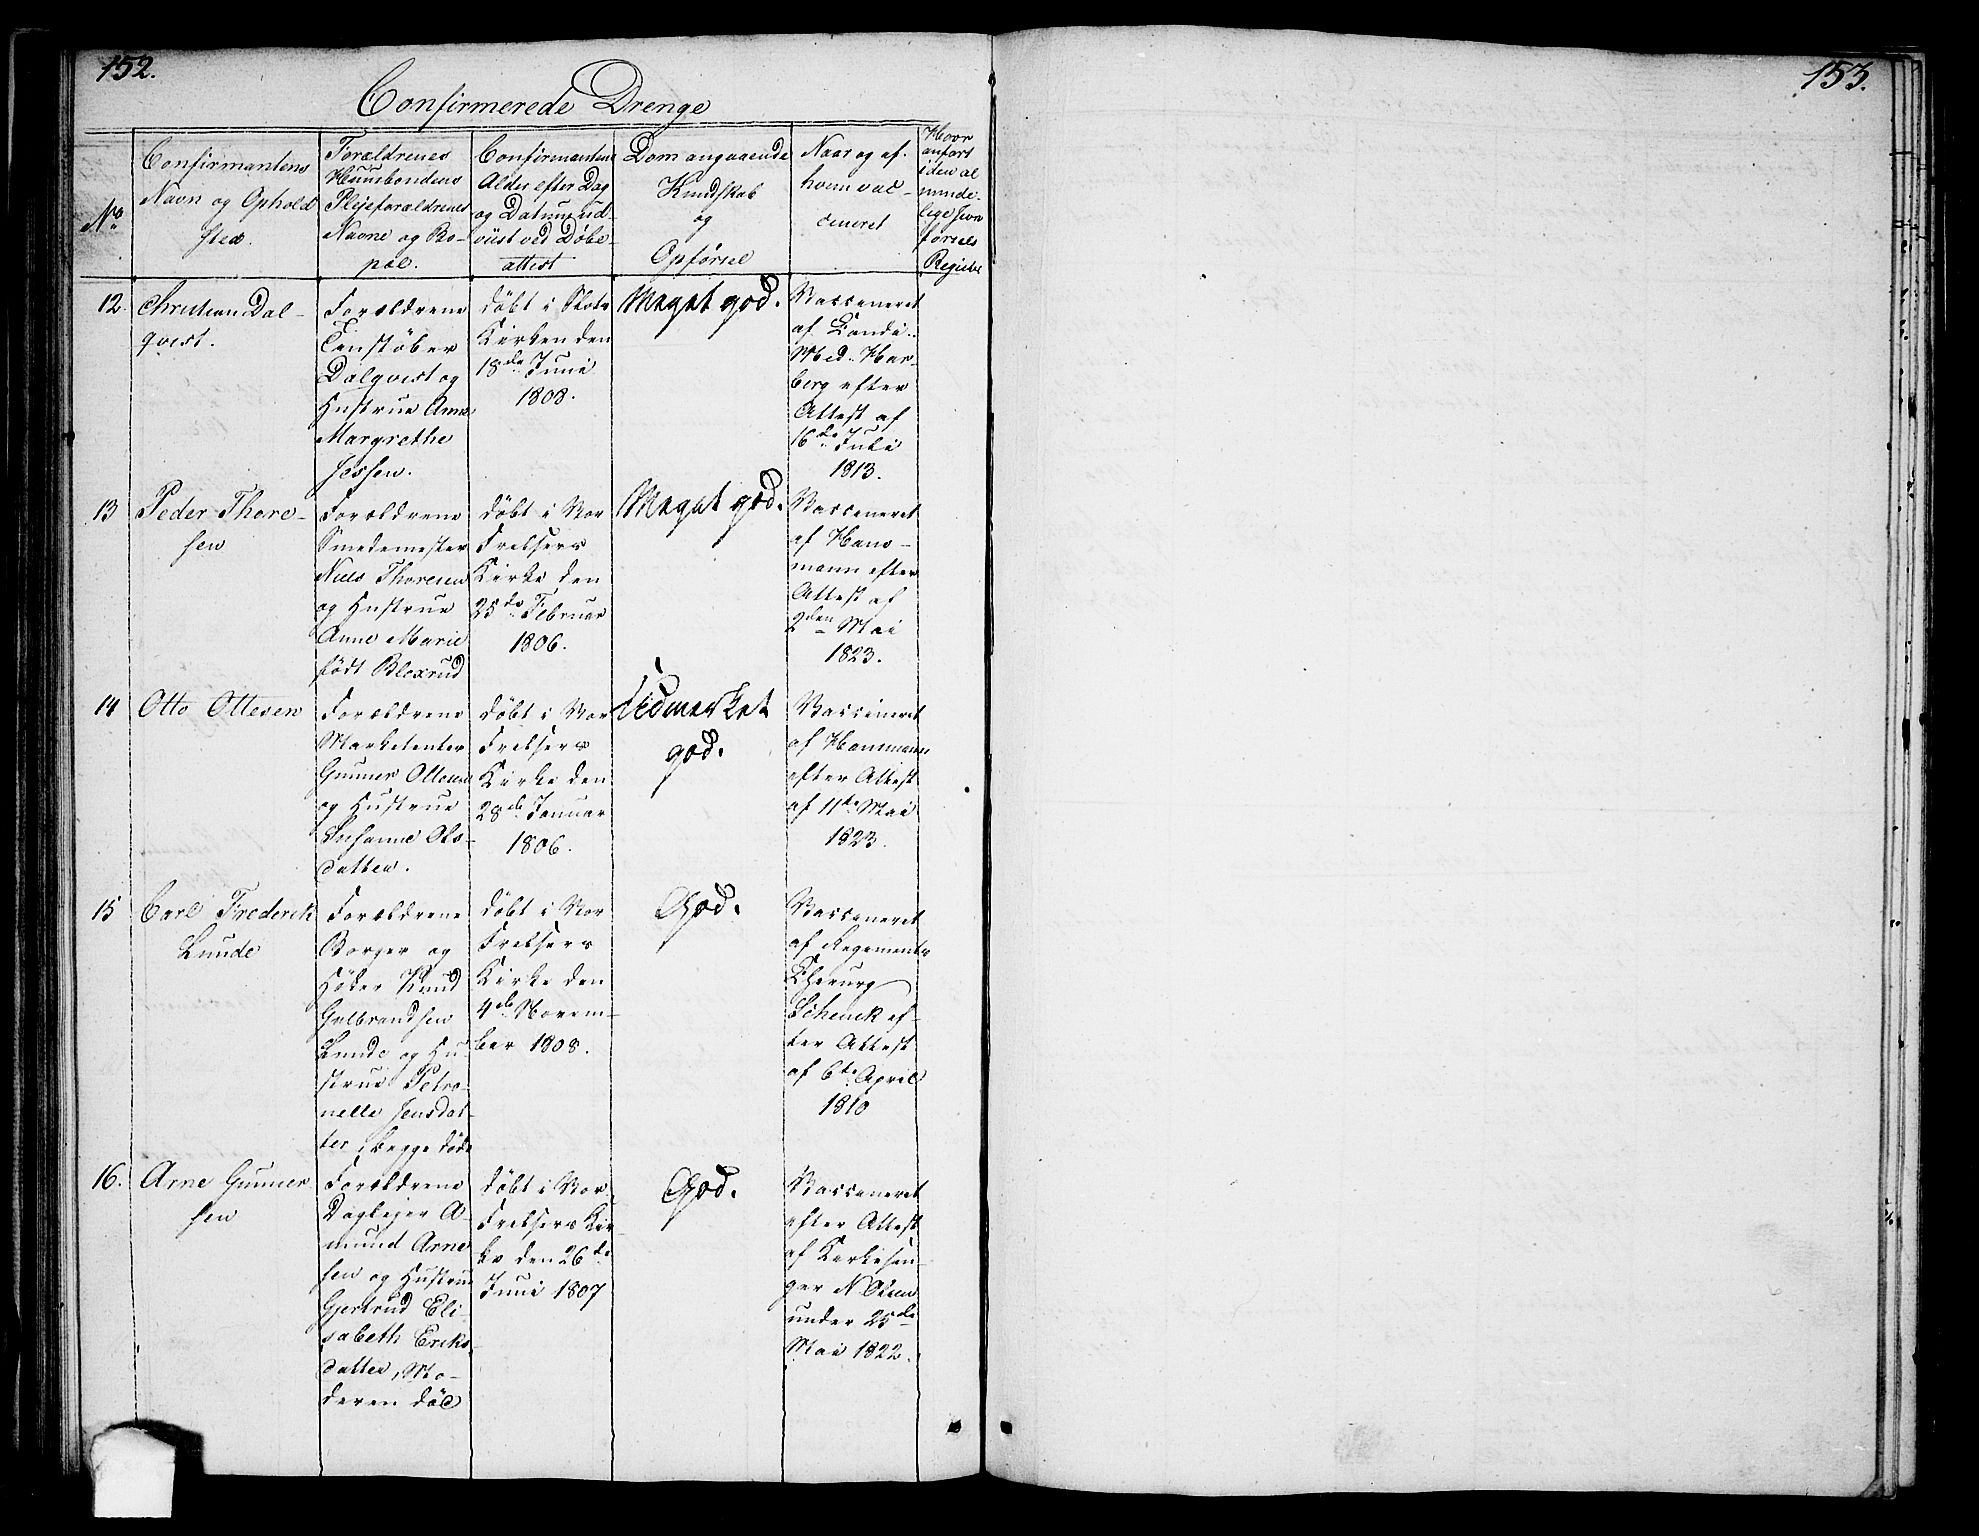 152.
Confirmerede Drenge
No
Confirmantens
Navn og Ophold
sted.
Forældrenes
Huusbondens
Plejeforældrenes
Navne og Bo-
pæl.
Confirmantens
Alder efter Dag
og Datum ud-
viist ved Döbe-
attest
Dom angaaende
Kundskab
og
Opførsel
Naar og af
hvem vac-
cineret
Hvor
anført
i den al
minde-
lige Jevn
førsels
Register
12.
Christian Dal-
qvist.
Forældrene
Tinstöber
Dalqvist og
Hustrue Anne
Margrethe
Jessen.
döbt i Slots
Kirken den
18de Juni
1808.
Meget god.
Vaccineret
af Landi..
Med. Har-
berg efter
Attest af
16de Juli
1813.
13
Peder Thore-
sen
Forældrene
Smedemester
Niels Thoresen
og Hustrue
Anne Marie
födt Bloxrud
döbt i Vor
Frelsers
Kirke den
25de Februar
1806.
Meget god.
Vaccineret
af Hans-
mann efter
Attest af
2den Mai
1823.
14
Otto Ottesen
Forældrene
Marketenter
Gunner Ottesen
og Hustrue
Susanne Ols-
datter.
döbt i Vor
Frelsers
Kirke den
28de Januar
1806.
Udmærket
god.
Vaccineret
af Hansmann
efter Attest
af 11te Mai
1823.
15
Carl Frederik
Lunde
Forældrene
Borger og
Höker Knud
Gulbrandsen
Lunde og Hu-
strue Petro-
nelle Jensdat-
ter, begge döde
döbt i Vor
Frelsers
Kirke den
4de Novem-
ber 1808.
God.
Vaccineret
af Regiments
Chirurg
Schenck ef-
ter Attest
af 6te April
1810
16.
Arne Gunner
sen
Forældrene
Daglejer A-
mund Arne
sen og Hustrue
Gjertrud Eli
sabeth Eriks-
datter, Mo-
deren död
döbt i Vor
Frelsers Kir
ke den 26de
Juni 1807
God.
Vaccineret
efter Attest
af Kirkesan-
ger N. Olsen
under 25de
Mai 1822.
153.